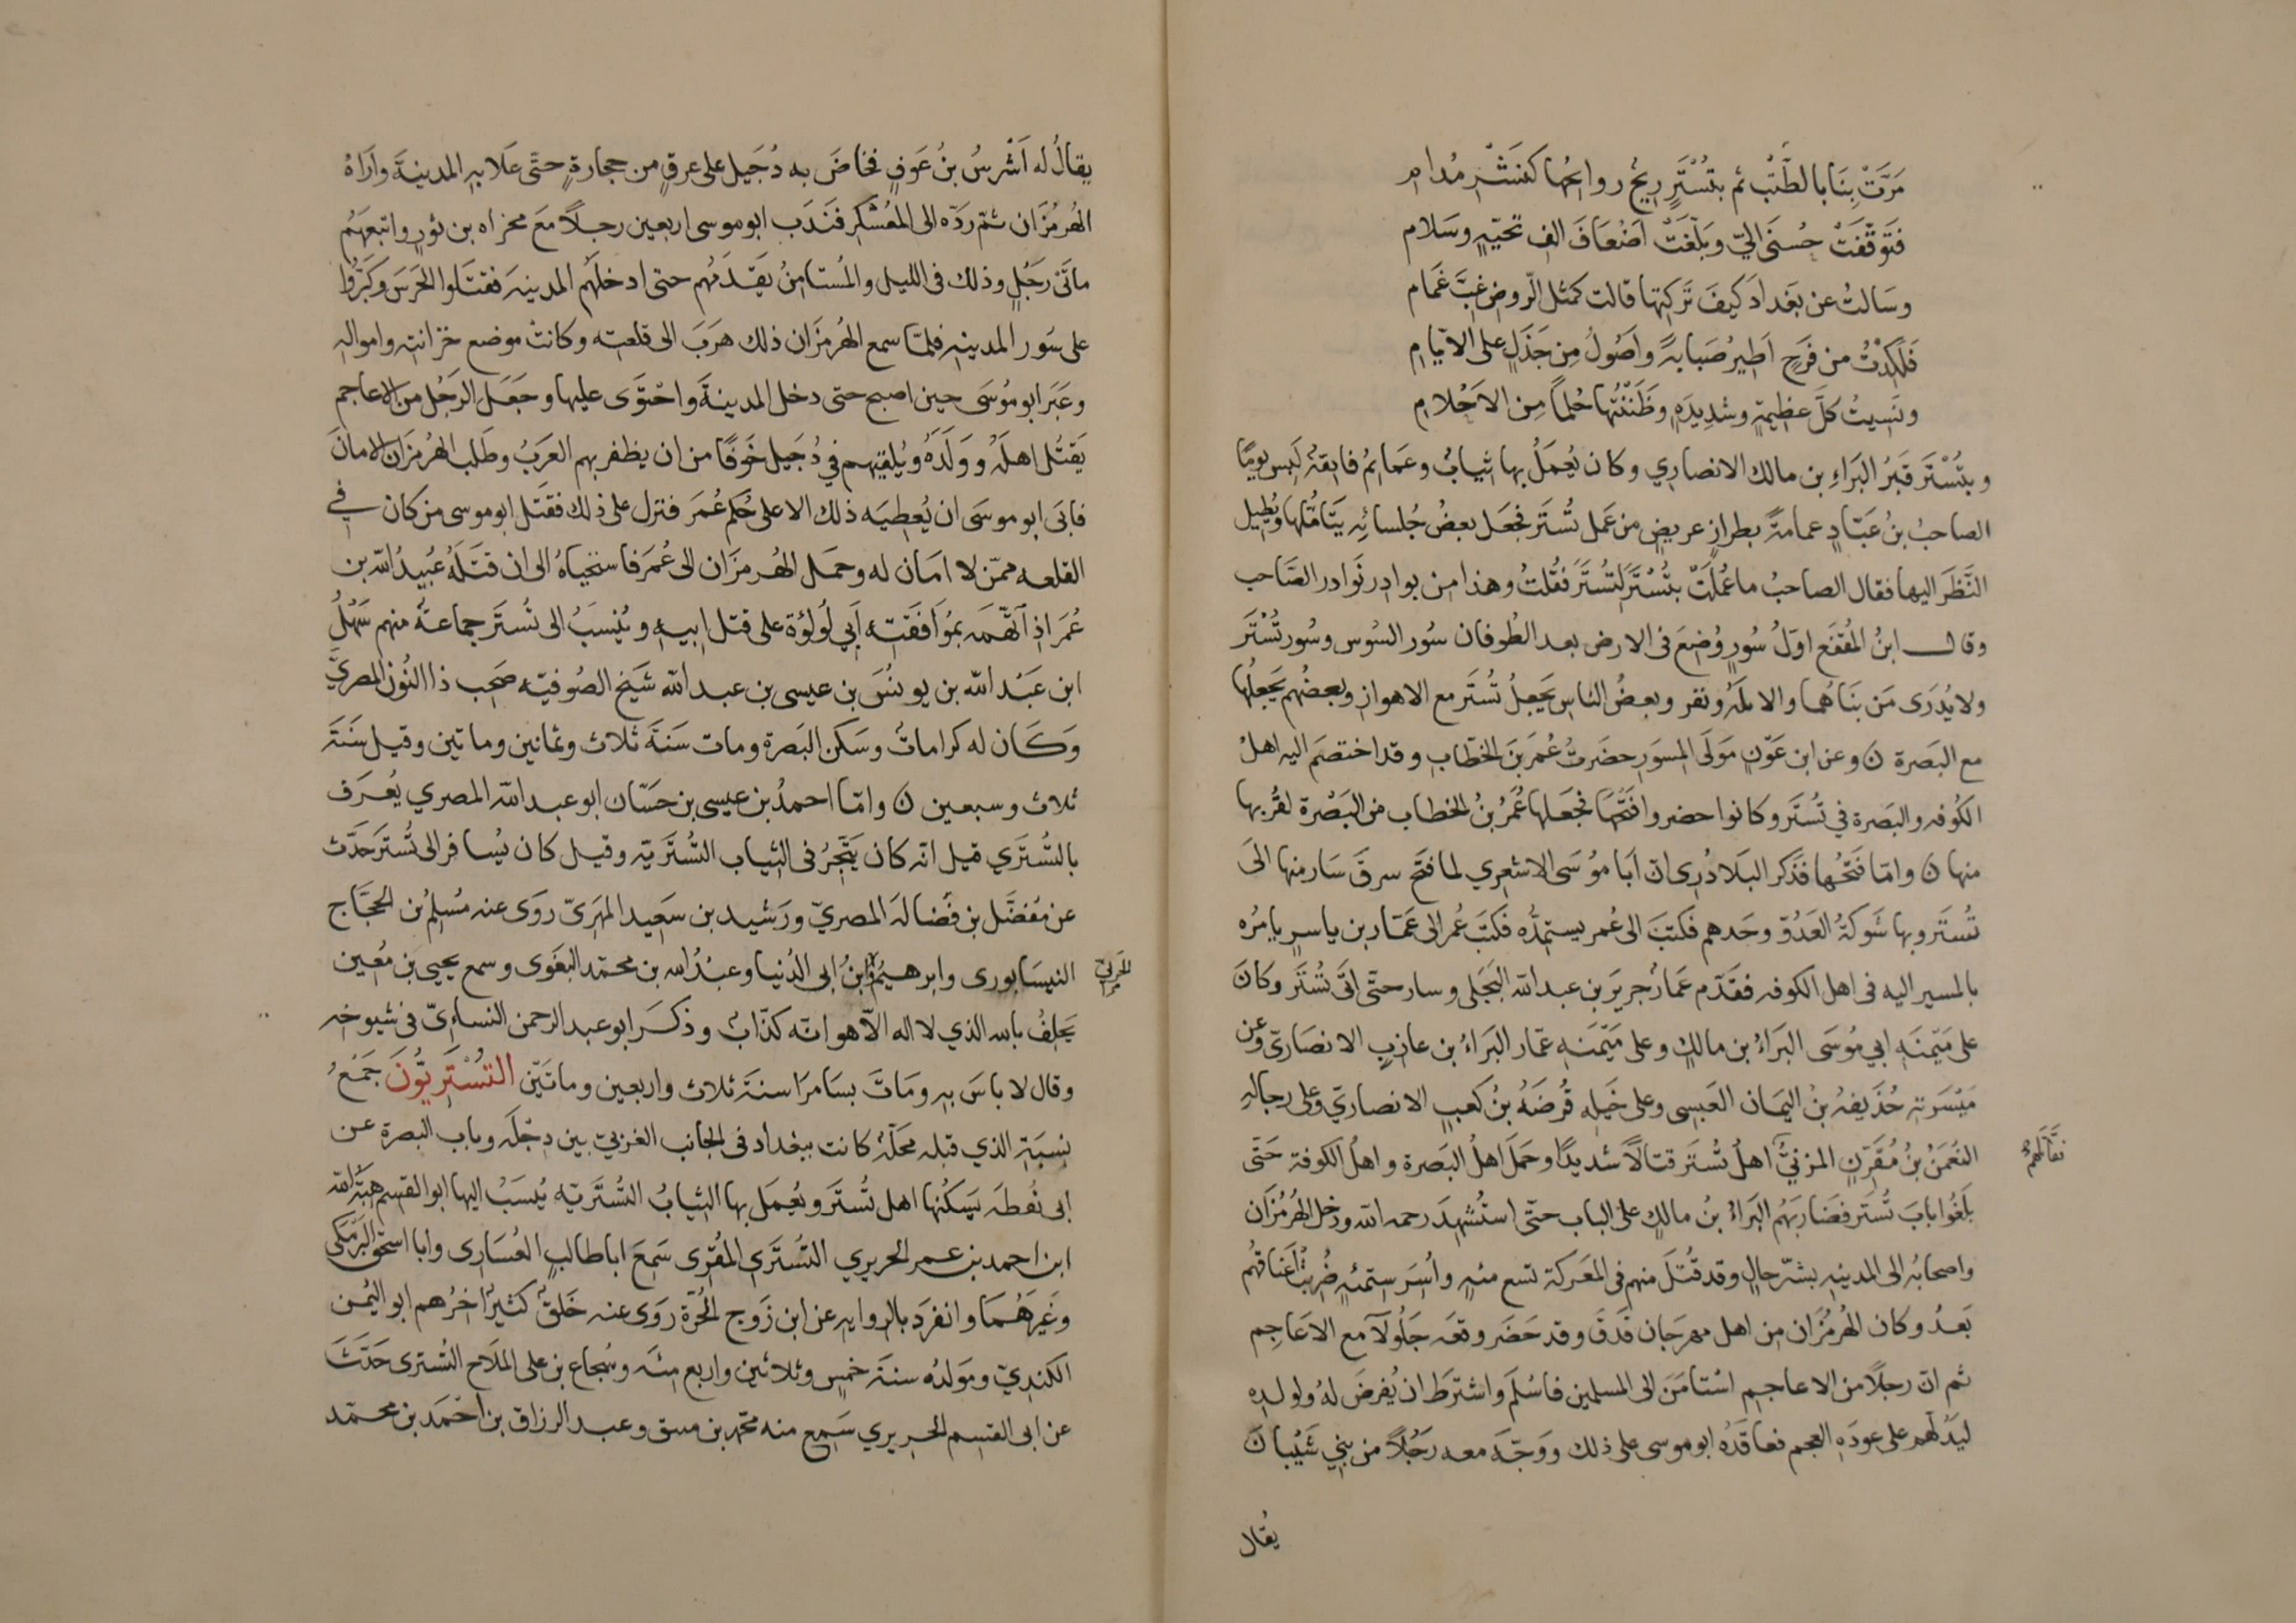 مَرَّتْ بِنَا بالطِّيْبِ ثم بتُسْتَرٍ رِيحٌ روائحُها كَنَشْرِ مُدامِ
فَتَوقَّفَتْ حُسنَى اليّ وبَلّغَتْ اضْعَافَ الفِ تحيّةٍ وسَلام
وسَالتُ عن بغدادَ كيفَ تَركتِها قالت كمثل الرّوضِ غِبَّ غَمام
فَلَكِدْتُ من فَرَحٍ اَطيرُ صَبابةً واَصُولُ مِن جَذَلٍ على الايّامِ
ونَسِيتُ كلَّ عظيمةٍ وشديدَةٍ وظَننْتُها حُلماً مِن الاَحْلامِ
وبتُسْتَر قَبْرُ البَرَاءِ بن مالك الانصاري وكان يُعمَلُ بها ثيابٌ وعَمايمُ فايقةٌ لَبِس يومًا
الصاحبُ بنُ عَبّادٍ عمامةً بطرازٍ عريضٍ من عَمل تُسْتَر فجَعَل بعضُ جُلسائِهِ يَتامَّلُها ويُطِيل
النَّظَر اليها فقال الصاحبُ ما عُمِلَتْ بتُسْتَر لتُستَر فقُلتُ وهذا من بوادر نَوادر الصَّاحب
وقال ابنُ المُقفَع اوّلُ سُورٍ وُضِعَ فى الارض بعد الطُوفان سُور السُوس وسُور تُسْتَر
ولا يُدرَى مَن بَنَاهُما والابُلَّةُ ونفر وبعضُ الناس يَجعلُ تُستَر مع الاهواز وبعضُهم يَجعلُها
مع البَصرة ن وعن ابن عَوْنٍ مَولَى المِسوَرِ حضَرتُ عُمَرَ بنَ الخطّابِ وقد اختصَم اليه اهلُ
الكُوفه والبَصرة في تُستَر وكانوا حضروا فَتحَها فجَعلها عُمَرُ بنُ الخطاب من البَصْرة لقُربها
منها ن وامّا فَتحُها فذَكر البَلاذُرى انّ اَبا موُسَى الاشعري لما فتَح سرق سَار منها الىَ
تُستَر وبها شَوكَةُ العَدُوّ وحَدهم فكتَبَ الى عُمر يستمِدُّه فكَتبَ عُمر الى عَمّار بن ياسرٍ يامرُه
بالمسير اليه فى اهل الكوفه فقَدّم عَمّارٌ جريرَ بن عبد الله البَجَلى وسار حتّى اتَى تُستَر وكانَ
على مَيْمنَةِ ابي مُوسَى البَراءُ بن مالكٍ وعلى مَيْمَنَةِ عمّار البَراءُ بن عازبٍ الانصَاريّ وعن
مَيْسَرتِهِ حُذَيفةُ بنُ اليَمان العَبسى وعلى خَيلِه قُرضَهُ بنُ كعبٍ الانصاريّ وعلى رجالهِ
النُعمَنُ بنُ مُقَرِّنٍ المزنيُّ اهلُ تُستَر قتالاً شديدًا وحَمَلَ اهلُ البَصرة واهلُ الكوفة حَتى
فقاتلهم
بَلَغُوا بابَ تُستَر فضَاربَهُم البَراءُ بنُ مالكٍ على الباب حتّى استُشهِدَ رحمه الله ودخل الهُرمُزان
واصحابُه الى المدينهِ بشرّ حالٍ وقد قُتِلَ منهم فى المعَركة تسع مئهٍ واُسِرَ ستمئهٍ ضُرِبتْ اَعناقُهُم
بَعدُ وكان الهُرمُزان مِن اهل مهرجَان قَذَقَ وقد حَضَر وقعَه جَلُولاَ مع الاَعَاجِم
ثم انّ رجلاً من الاعاجم استَامَنَ الى المسلمين فاسْلَم واشترَط ان يُفرضَ لهُ ولولده
ليَدُلَّهم على عورَةِ العجم فعاقَدهُ ابو موسى على ذلك ووَجّه معه رَجُلاً من بنِي شَيْبان
يُقال
يقالُ له اَشْرسُ بنُ عَوفٍ فخاضَ به دُجَيل على عرقٍ من حجارةٍ حتَّى عَلا بهِ المدينةَ واَرَاهُ
الهُرمُزَان ثمّ ردّه الى المعُسْكَر فنَدَب ابو موسى اربعين رجلاً مَع مخزاه بن ثورٍ واتبعَهُم
ماتَىْ رَجُلٍ وذلك فى الليل والمُستامِنُ يَقدَمُهم حتى ادخلَهُم المدينهَ فقتَلوا الحَرَسَ وكَبّرُوا
على سُور المدينهِ فلمّا سمع الهُرمُزَان ذلك هرَبَ الى قلعته وكانتْ موضع خزانته وامواله
وعَبَر ابو موُسَى حين اصبح حتى دخل المدينةَ واحْتوَى عليها وجَعَلَ الرجُل من الاعاجم
يَقتُل اهلَهُ ووَلَدَهُ ويُلقيهم في دُجَيل خَوفًا من ان يظفر بهم العَربُ وطَلب الهُرمُزَان الامانَ
فابَى ابو موسَى ان يُعطِيَه ذلك الا على حُكم عُمَرَ فنزل على ذلك فقتَل ابو موسى مَن كان في
القلعه ممّن لا اَمَان له وحمَل الهُرمزَان الى عُمَر فاستحيَاهُ الى ان قتَلَهُ عُبَيدُ الله بن
عُمَر اذِ اتّهَمَه بمُوَافَقَتِه اَبي لُولُؤة على قتل ابيهِ ويُنْسَبُ الى تُستَر جماعةٌ منهم سَهْلُ
ابن عَبْد الله بن يونسَ بن عيسى بن عبد الله شَيخ الصُوفيّه صَحِب ذا النُون المصريّ
وَكَان له كراماتٌ وسَكن البَصرة ومات سَنةَ ثلاث وثمانين ومايتين وقيل سَنَةَ
ثلاث وسبعين ن وامّا احمدُ بن عيسى بن حَسّان ابو عبد الله المصري يُعرَف
بالتُستَري قيل انّه كان يَتّجِرُ فى الثياب التُستَريّه وقيل كان يُسافر الى تُستَر حَدّث
عن مُفضّل بن فَضالَة المصريّ ورَشيد بن سَعيد المَهرىّ روَى عنه مُسلمُ بن الحجّاج
النيسَابورى وابرهيمُ وابنُ ابى الدُنيا وعبْدُ الله بن محمّد البغَوى وسمع يحيى بن مُعين
الحَربىّ
يَحلِفُ بالله الذي لا اله الاّ هو انّه كذّابٌ وذكَر ابو عبد الرحمن النساىّ فى شيوخه
وقال لا باسَ به ومَاتَ بسَامرَا سنةَ ثلاث واربعين وماتَيْن التُسْتَرِيُّونَ جَمْعُ
نِسبَةِ الذي قبله محَلّةٌ كانت ببغداد فى الجانب الغربيّ بين دِجْلَه وباب البصرة عن
ابى نُقطَه يَسكُنُها اهل تُستَر ويُعمَل بها الثيابُ التُستَريّه يُنسَبُ اليها ابو القسم هِبَةُ الله
ابن احمد بن عمر الحريري التُستَري المُقرى سَمِعَ ابا طالبٍ العُشَارى وابا اسحق البَرْمَكى
وغَيرهُما وانفرَد بالروايهِ عن ابن زَوج الحُرّة رَوَى عنه خَلقٌ كثيرٌ آخرُهم ابو اليُمن
الكندِيّ ومَولدُه سنةَ خمسٍ وثلاثين واربع مِئه وشجاع بن على الملاّح التُسترى حَدّثَ
عن ابى القسم الحريري سَمِع منه محمّد بن مسق وعبد الرزاق بن اَحْمَد بن محمّد